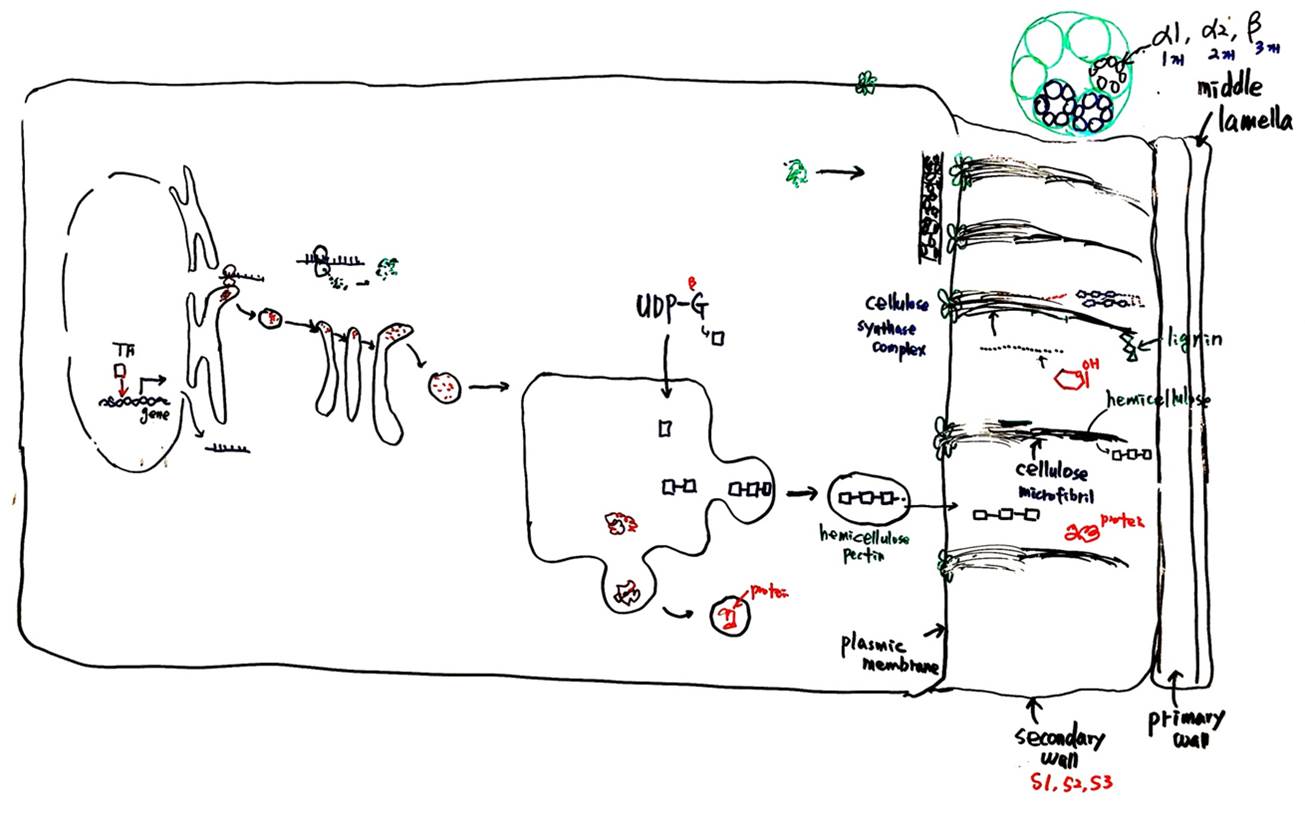 α1, α2, β
1개 2개 3개
middle
lamella
UDP-G
β
4
cellulose
synthase
complex
lignin
OH
hemicellulose
gene
cellulose
microfibril
hemicellulose
pectin
protein
protein
plasmic
membrane
secondary
wall
S1, S2, S3
primary
wall